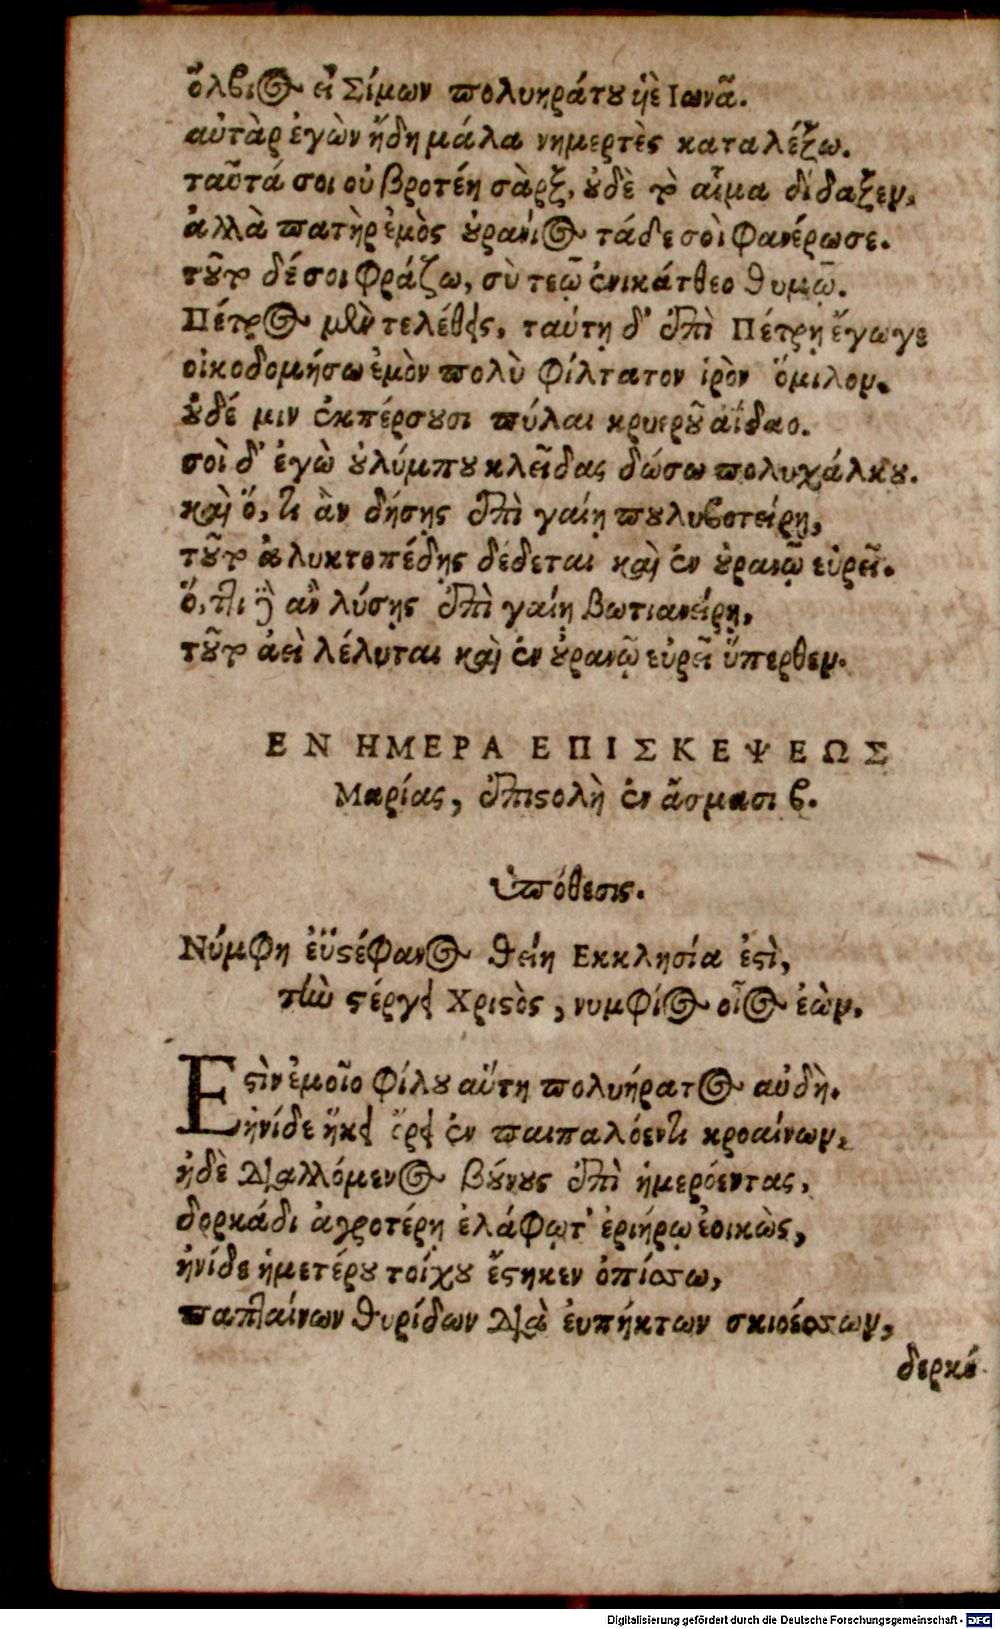 ὄλβιος εἶ Σίμων πολυκράτου ὑὲ Ιωνᾶ.
αὐτὰρ ἐγὼν ἤδη μάλα νημερτὲς καταλέξω.
ταῦτά σοι οὐ βροτέη σὰρξ, οὐδὲ τὸ αἷμα δίδαξεν,
ἀλλὰ πατὴρ ἐμὸς οὐράνιος τάδε σοὶ φανέρωσε.
τοῦτο δέ σοι φράζω, σὺ τεῷ ἐνικάτθεο θυμῷ.
Πέτρος μὲν τελέθεις, ταύτῃ δ' ἐπὶ Πέτρῃ ἔγωγε
οἰκοδομήσω ἐμὸν πολὺ φίλτατον ἱρὸν ὅμιλον.
οὐδέ μιν ἐκπέρσουσι πύλαι κρυεροῦ ἀΐδαο.
σοὶ δ' ἐγὼ οὐλύμπου κλεῖδας δώσω πολυχάλκου.
καὶ ὅ, τι ἂν δήσῃς ἐπὶ γαίῃ πουλυβοτείρῃ,
τοῦτο ἀλυκτοπέδῃς δέδεται καὶ ἐν οὐρανῷ εὐρεῖ.
ὅ, τι δ' ἂν λύσῃς ἐπὶ γαίῃ βωτιανείρῃ,
τοῦτο ἀεὶ λέλυται καὶ ἐν οὐρανῷ εὐρεῖ ὕπερθεν.
ΕΝ ΗΜΕΡΑ ΕΠΙΣΚΕΨΕΩΣ
Μαρίας, ἐπιστολὴ ἐν ᾄσμασι β.
ὑπόθεσις.
Νύμφη ἐϋστέφανος θείη Εκκλησία ἐστὶ,
τὴν στέργει Χριστὸς, νυμφίος οἷος ἐὼν.
Εστὶν ἐμοῖο φίλου αὕτη πολυήρατος αὐδὴ.
ἠνίδε ἥκει ὄρει ἐν παιπαλόεντι κροαίνων,
ἠδὲ διαλλόμενος βούνους ἐπὶ ἱμερόεντας,
δορκάδι ἀγροτέρῃ ἐλάφῳ τ' ἐριήρῳ ἐοικὼς,
ἠνίδε ἡμετέρου τοίχου ἕστηκεν ὀπίσσω,
παπταίνων θυρίδων διὰ ἐυπήκτων σκιοέσσων,
δερκό
Digitalisierung gefördert durch die Deutsche Forschungsgemeinschaft - DFG